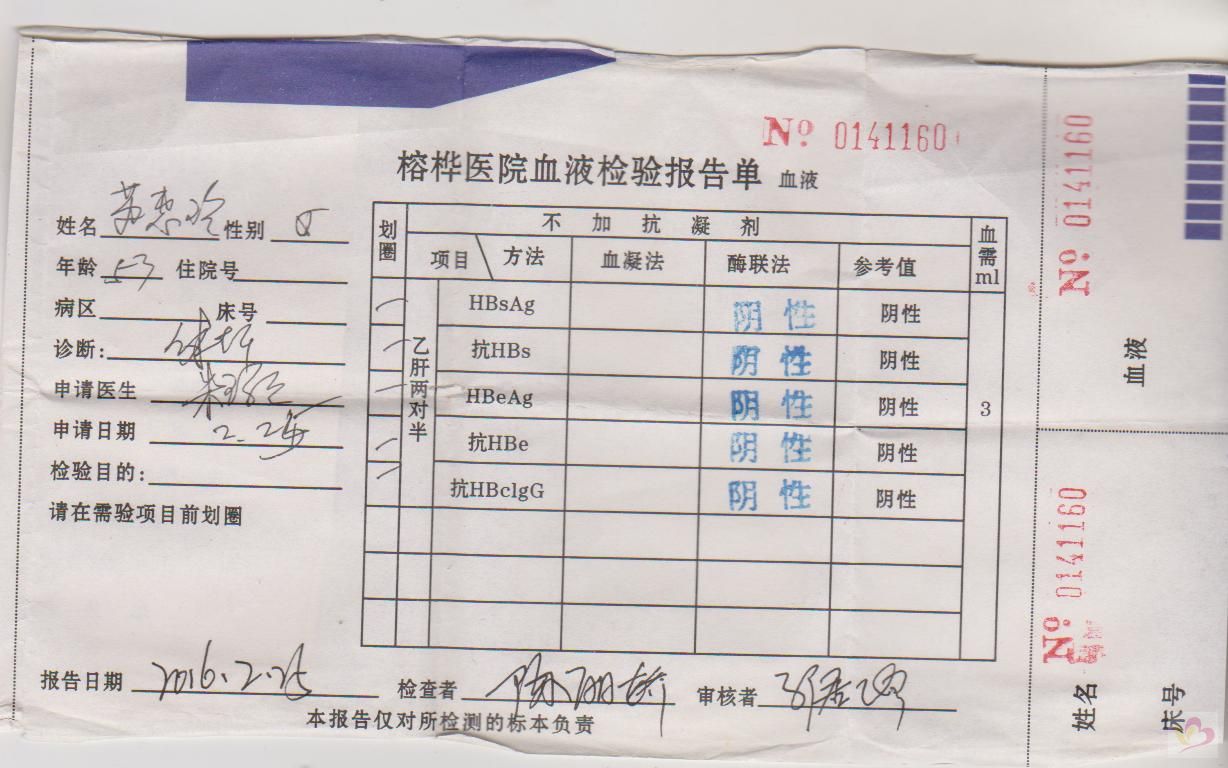 № 0141160
榕桦医院血液检验报告单 血液
姓名 性别 女
年龄 53 住院号
病区 床号
诊断:
申请医生
申请日期 2.25
检验目的:
请在需验项目前划圈
划圈 不加抗凝剂 血需ml
项目 方法 血凝法 酶联法 参考值
乙肝两对半
HBsAg 阴性 阴性
抗HBs 阴性 阴性
HBeAg 阴性 阴性
3
抗HBe 阴性 阴性
抗HBclgG 阴性 阴性
报告日期 2016.2.25 检查者 审核者
本报告仅对所检测的标本负责
№ 0141160
血液
№ 0141160
姓名
床号